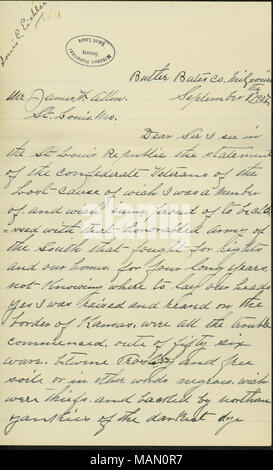 Louis C. Eichler
Missouri Historical
Society
St. Louis
Butler Bates Co. Missouri
September
Mr James H. Allen.
St. Louis, Mo.
Dear Sir I see in
the St Louis Republic the statement
of the Confederate Veterans of the
Lost cause of wich I was a member
of. and wish
with that Honorable army of
the South that fought for rights
and our homes. for four long years,
not knowing where to lay our heads
yes I was raised and reared on the
border of Kansas, were all the trouble
commenced. out of fifty six
ware. betwene and free
soile or in other words negroes. wich
were thiefs. and backed by northern
yankies of the darkest dye
alamy
alamy
MAN0R7